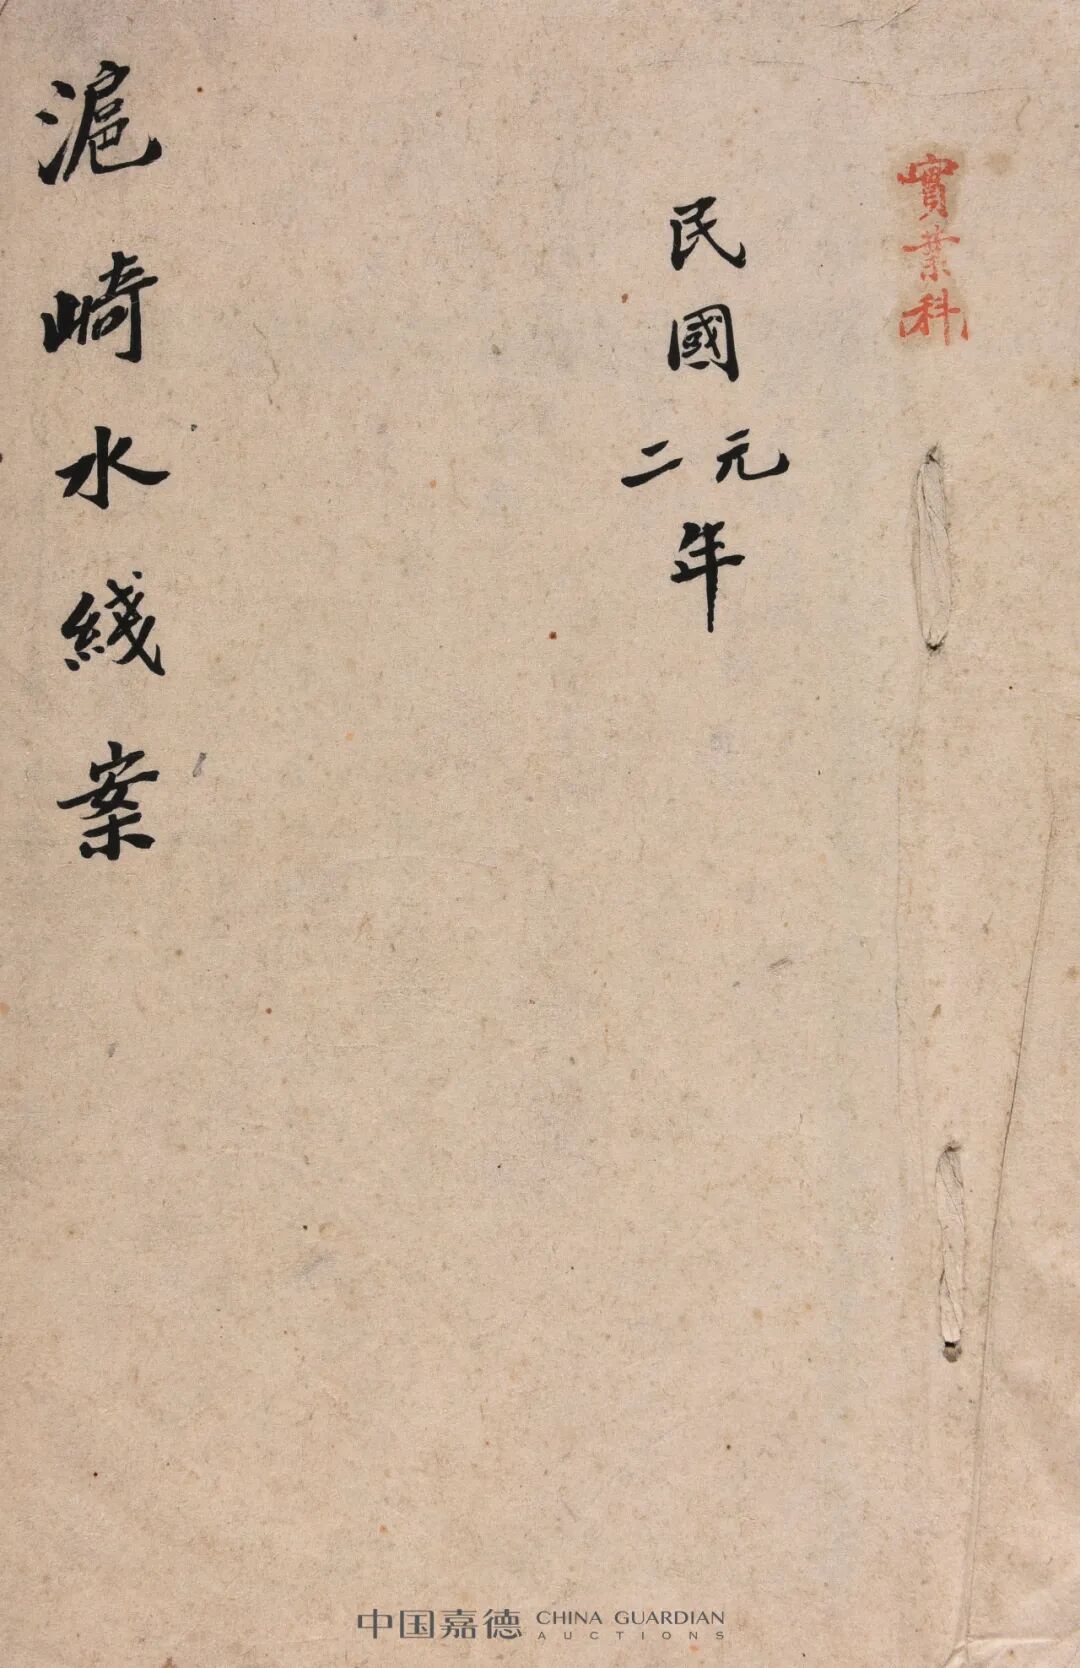 實業科
民國
元二
年
滬崎水綫案
中国嘉德 CHINA GUARDIAN
AUCTIONS